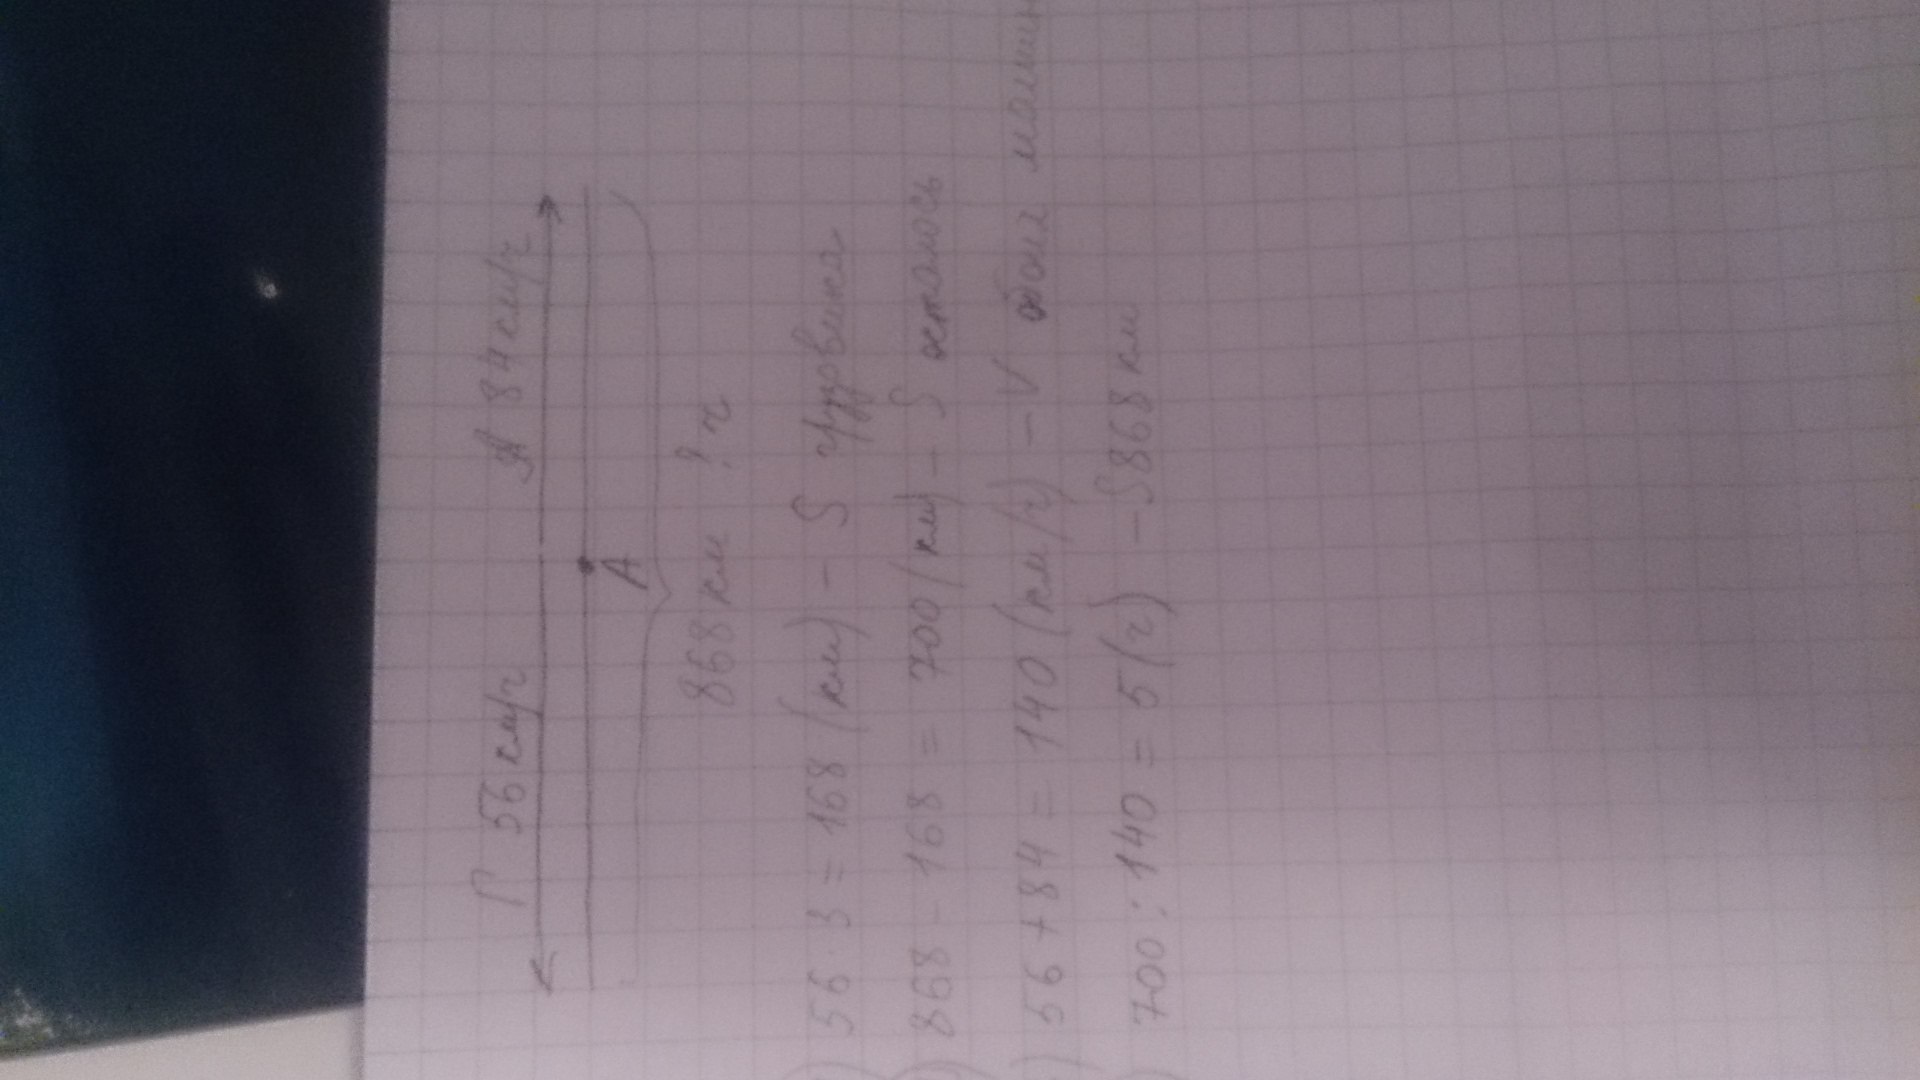 Г 56 км/ч А 84 км/ч
А
868 км ? ч
) 56 · 3 = 168 (км) - S грузовика
) 868 - 168 = 700 (км) - S осталось
) 56 + 84 = 140 (км/ч) - V обоих машин
) 700 : 140 = 5 (ч) - S 868 км